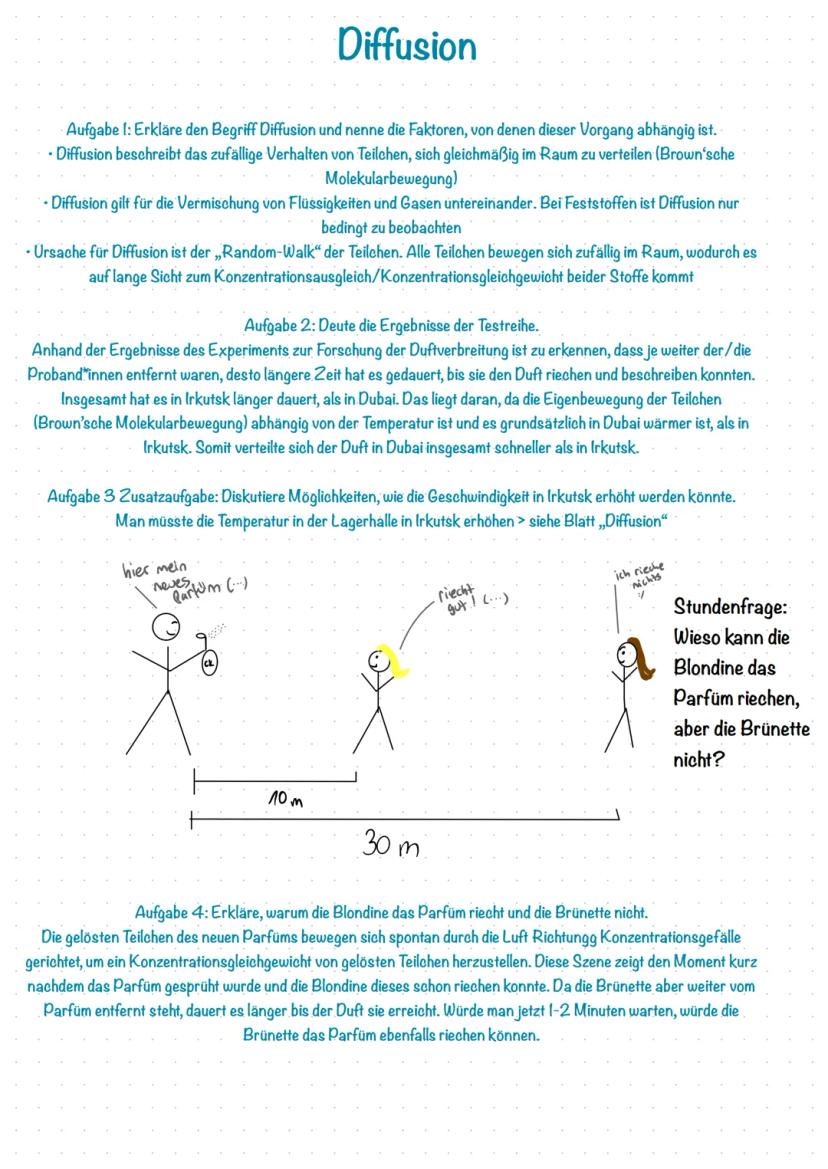 Diffusion
Aufgabe 1: Erkläre den Begriff Diffusion und nenne die Faktoren, von denen dieser Vorgang abhängig ist.
• Diffusion beschreibt das zufällige Verhalten von Teilchen, sich gleichmäßig im Raum zu verteilen (Brown'sche
Molekularbewegung)
• Diffusion gilt für die Vermischung von Flüssigkeiten und Gasen untereinander. Bei Feststoffen ist Diffusion nur
bedingt zu beobachten
• Ursache für Diffusion ist der „Random-Walk“ der Teilchen. Alle Teilchen bewegen sich zufällig im Raum, wodurch es
auf lange Sicht zum Konzentrationsausgleich/Konzentrationsgleichgewicht beider Stoffe kommt
Aufgabe 2: Deute die Ergebnisse der Testreihe.
Anhand der Ergebnisse des Experiments zur Forschung der Duftverbreitung ist zu erkennen, dass je weiter der/die
Proband*innen entfernt waren, desto längere Zeit hat es gedauert, bis sie den Duft riechen und beschreiben konnten.
Insgesamt hat es in Irkutsk länger dauert, als in Dubai. Das liegt daran, da die Eigenbewegung der Teilchen
(Brown'sche Molekularbewegung) abhängig von der Temperatur ist und es grundsätzlich in Dubai wärmer ist, als in
Irkutsk. Somit verteilte sich der Duft in Dubai insgesamt schneller als in Irkutsk.
Aufgabe 3 Zusatzaufgabe: Diskutiere Möglichkeiten, wie die Geschwindigkeit in Irkutsk erhöht werden könnte.
Man müsste die Temperatur in der Lagerhalle in Irkutsk erhöhen > siehe Blatt „Diffusion“
hier mein
neues
Parfüm (...)
riecht
gut! (...)
ich rieche
nichts
:/
CK
Stundenfrage:
Wieso kann die
Blondine das
Parfüm riechen,
aber die Brünette
nicht?
10 m
30 m
Aufgabe 4: Erkläre, warum die Blondine das Parfüm riecht und die Brünette nicht.
Die gelösten Teilchen des neuen Parfüms bewegen sich spontan durch die Luft Richtungg Konzentrationsgefälle
gerichtet, um ein Konzentrationsgleichgewicht von gelösten Teilchen herzustellen. Diese Szene zeigt den Moment kurz
nachdem das Parfüm gesprüht wurde und die Blondine dieses schon riechen konnte. Da die Brünette aber weiter vom
Parfüm entfernt steht, dauert es länger bis der Duft sie erreicht. Würde man jetzt 1-2 Minuten warten, würde die
Brünette das Parfüm ebenfalls riechen können.